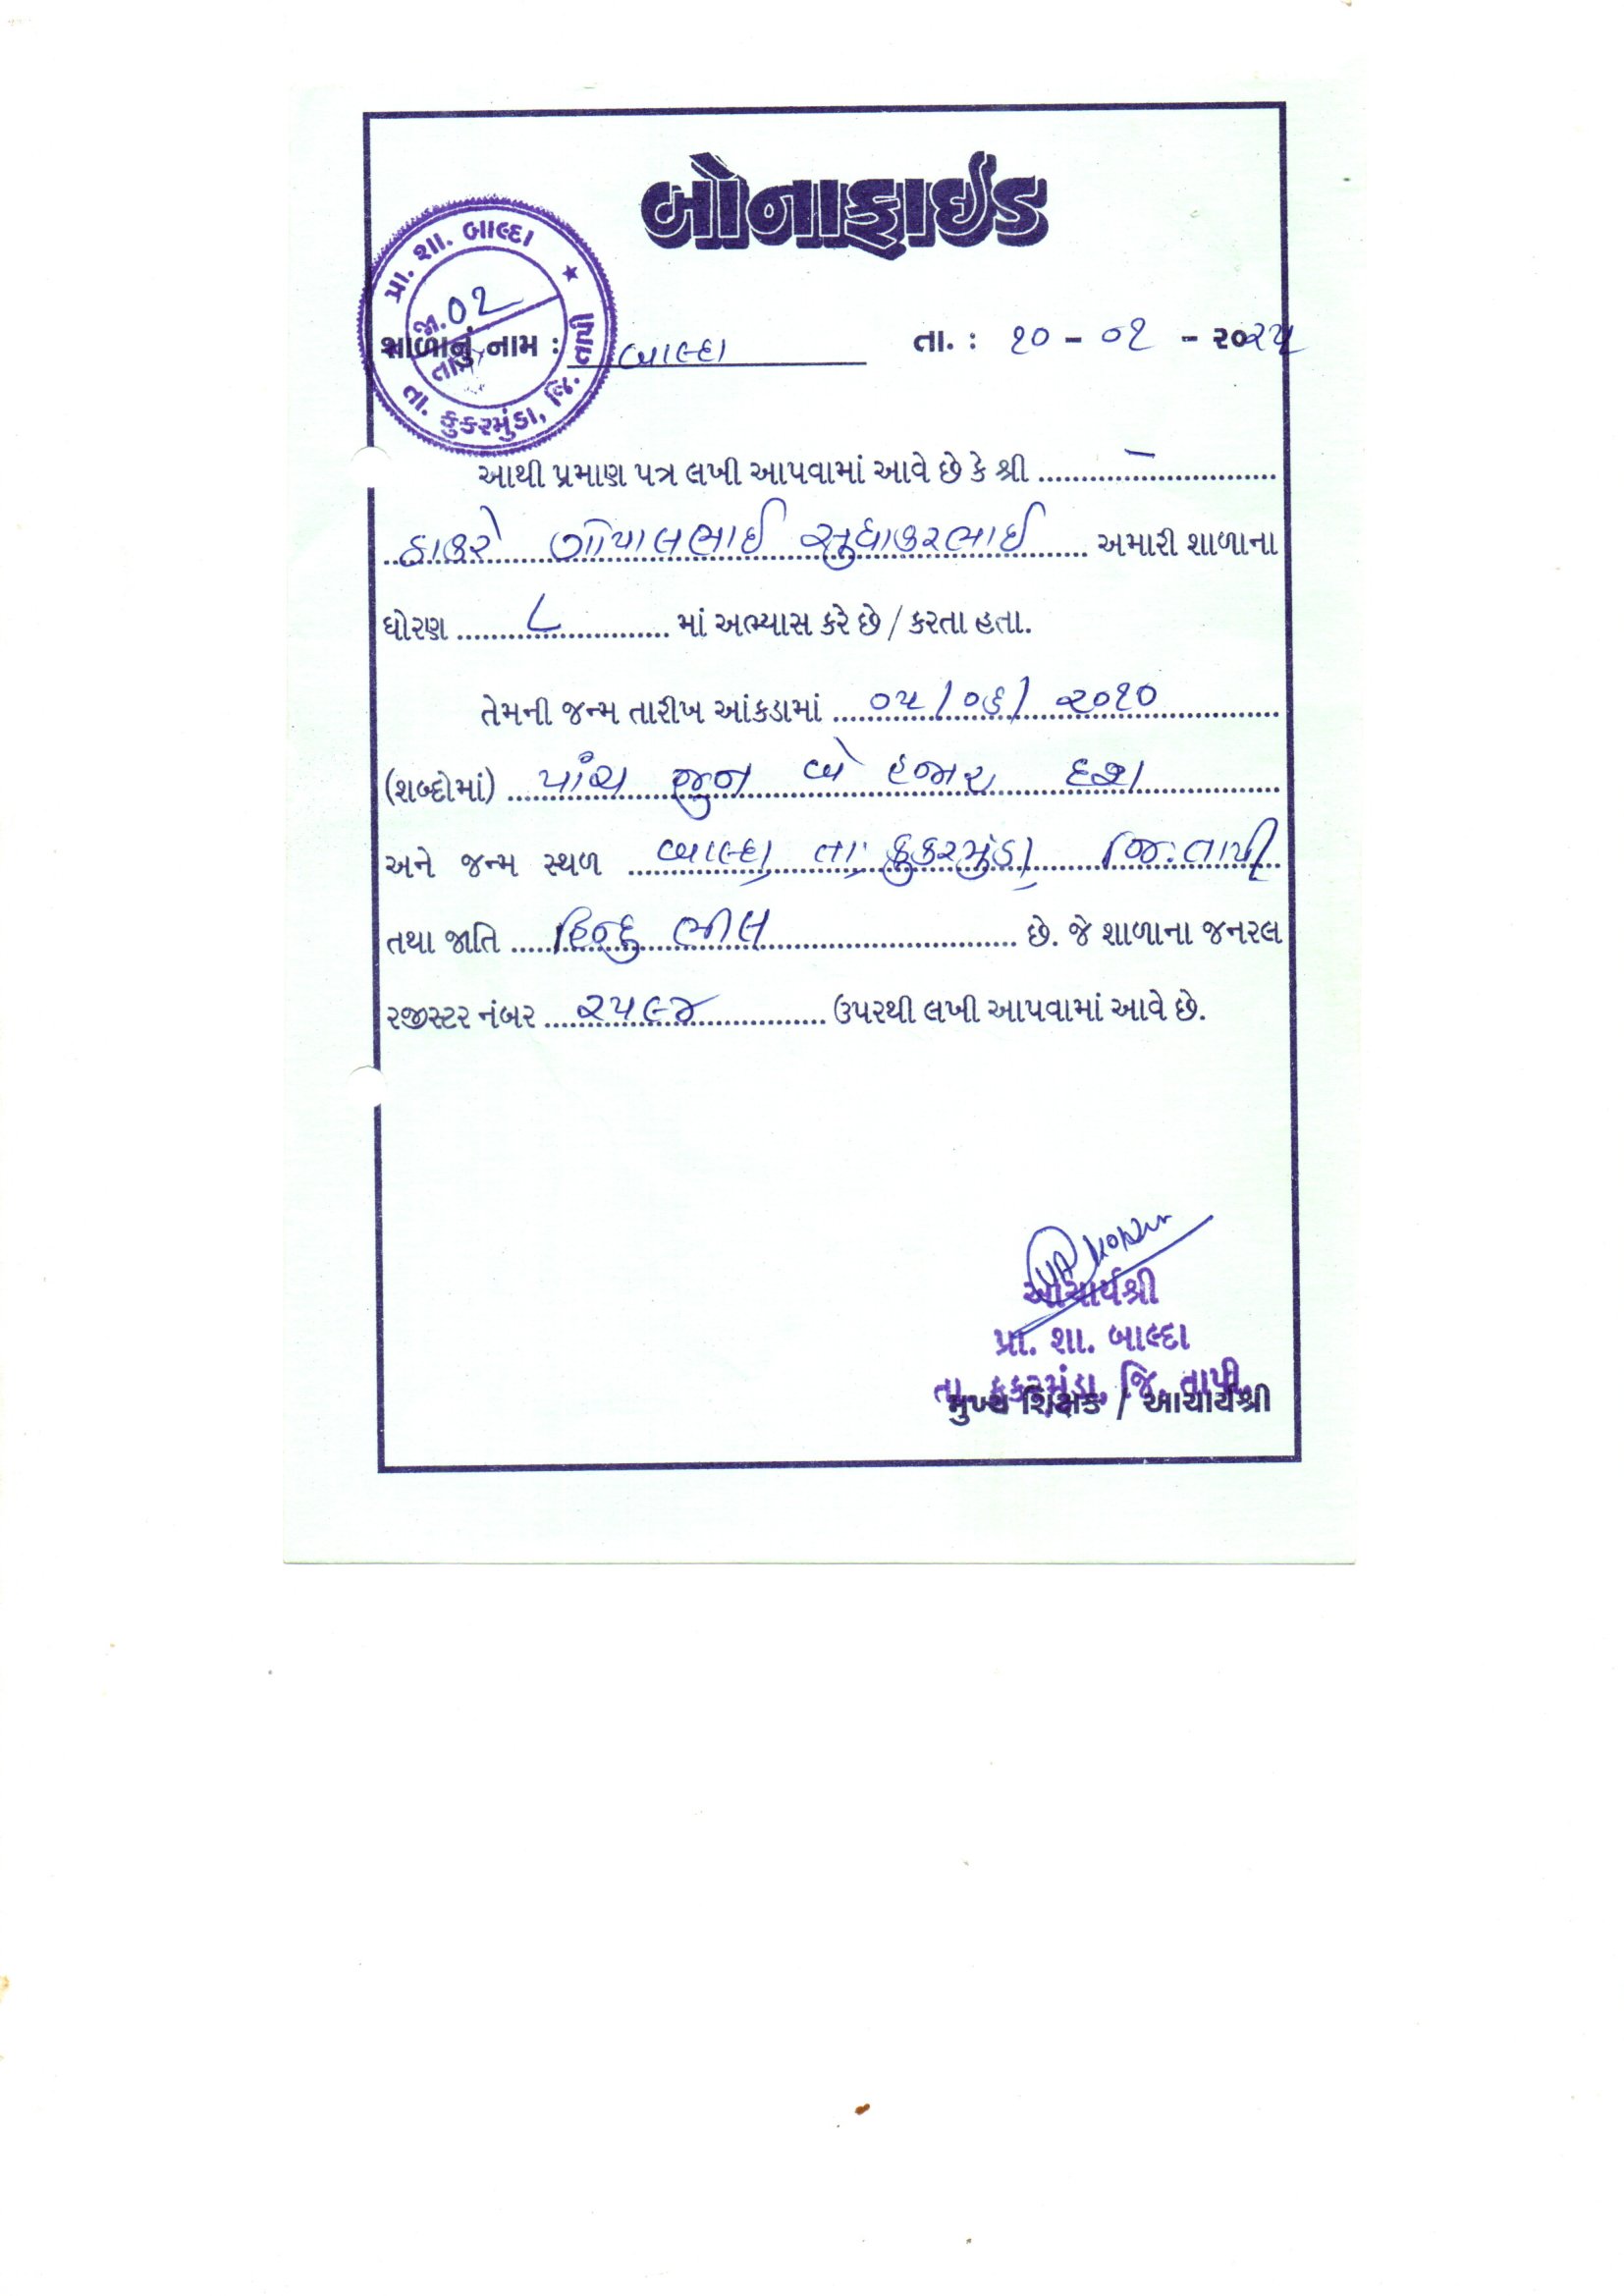 બોનાફાઇડ
પ્રા. શા. બાલ્દા
★
જા. ૦૧
તા.
તા. કુકરમુંડા, જિ. તાપી
શાળાનું નામ : બાલ્દા તા. : ૧૦ - ૦૧ - ૨૦૨૫
આથી પ્રમાણ પત્ર લખી આપવામાં આવે છે કે શ્રી —
ઠાકરે ગોપાલભાઈ સુધાકરભાઈ અમારી શાળાના
ધોરણ ૮ માં અભ્યાસ કરે છે / કરતા હતા.
તેમની જન્મ તારીખ આંકડામાં ૦૫/૦૬/૨૦૧૦
(શબ્દોમાં) પાંચ જુન બે હજાર દશ
અને જન્મ સ્થળ બાલ્દા, તા; કુકરમુંડા, જિ:તાપી
તથા જાતિ હિન્દુ ભીલ છે. જે શાળાના જનરલ
રજીસ્ટર નંબર ૨૫૯૪ ઉપરથી લખી આપવામાં આવે છે.
આચાર્યશ્રી
પ્રા. શા. બાલ્દા
તા. કુકરમુંડા, જિ. તાપી.
મુખ્ય શિક્ષક / આચાર્યશ્રી